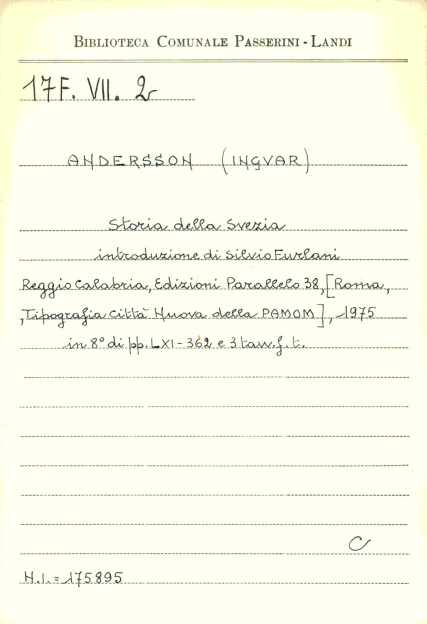 BIBLIOTECA COMUNALE PASSERINI - LANDI
17F. VII. 2
ANDERSSON (INGVAR)
Storia della Svezia
introduzione di Silvio Furlani
Reggio Calabria, Edizioni Parallelo 38, [Roma,
,Tipografia Città Nuova della PAMOM], 1975
in 8° di pp. LXI-362 e 3 tavv. f. t.
C
N.I. = 175895